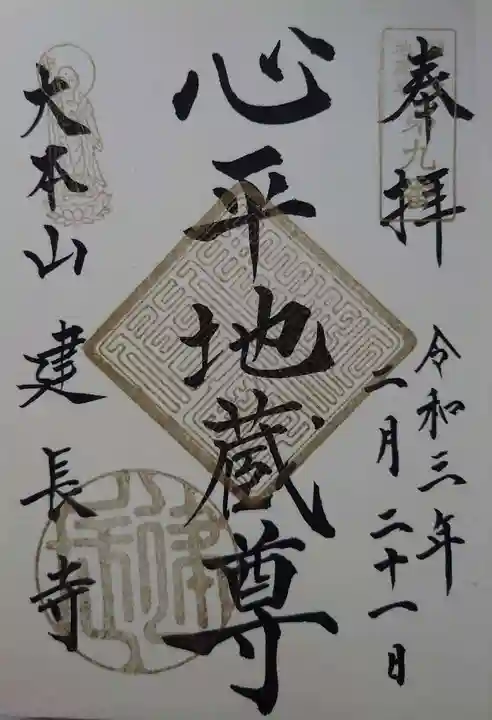 奉拝
令和三年
二月二十一日
心平地蔵尊
大本山建長寺